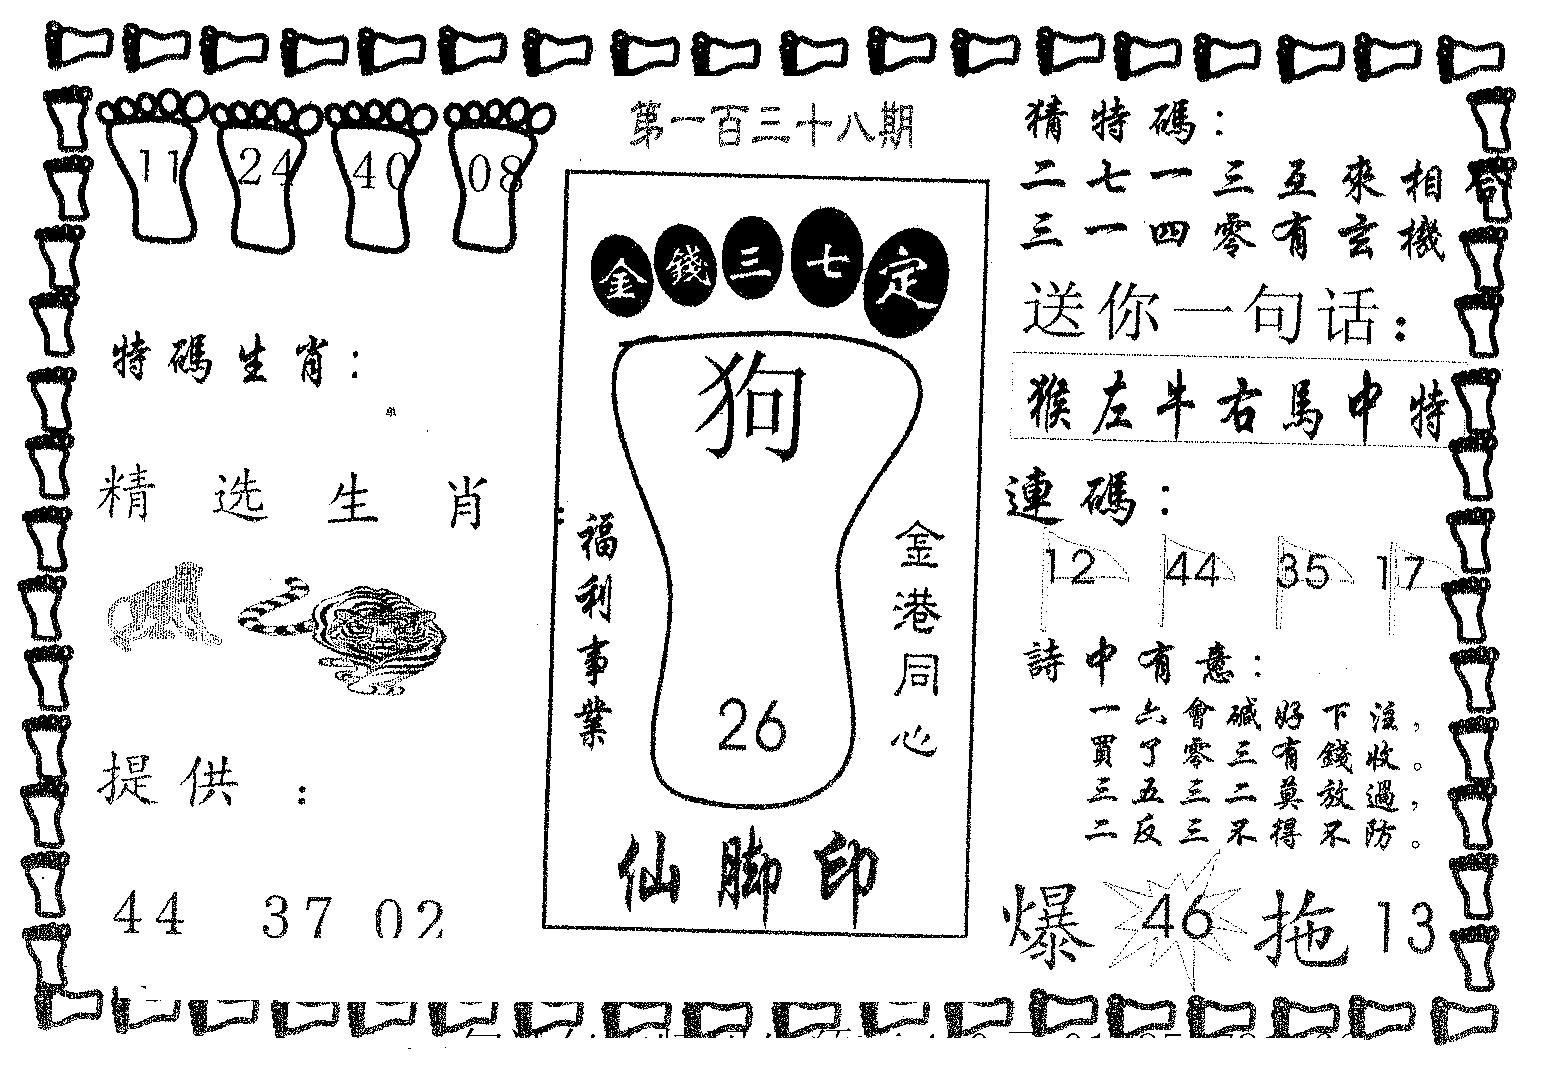 第一百三十八期
11 24 40 08
特碼生肖：
单
精选生肖：
提供：
44 37 02
金錢三七定
狗
26
福利事業
金港同心
仙脚印
猜特碼：
二七一三互來相
三一四零有玄機
送你一句话：
猴左牛右馬中特
連碼：
12 44 35 17
詩中有意：
一六會碱好下注，
買了零三有錢收。
三五三二莫放過，
二反三不得不防。
爆 46 拖 13